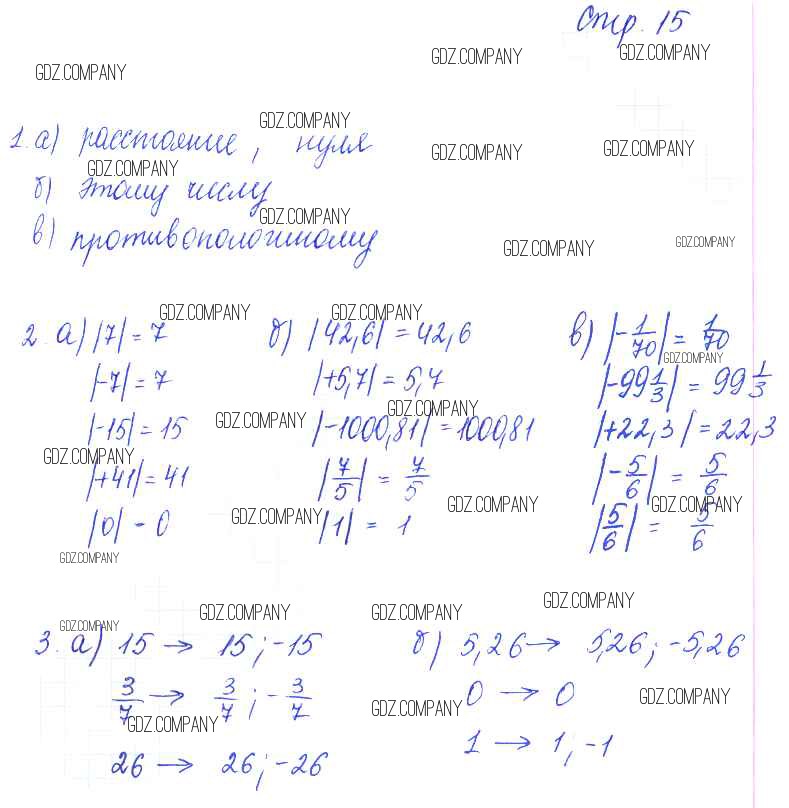 Стр. 15
GDZ.COMPANY GDZ.COMPANY GDZ.COMPANY
GDZ.COMPANY
1. а) расстояние, нуля
GDZ.COMPANY GDZ.COMPANY
GDZ.COMPANY
б) этому числу
GDZ.COMPANY
в) противоположному
GDZ.COMPANY GDZ.COMPANY
GDZ.COMPANY GDZ.COMPANY
2. а) |7| = 7 б) |42,6| = 42,6 в) |-1/70| = 1/70
GDZ.COMPANY
|-7| = 7 |+5,7| = 5,7 |-99 1/3| = 99 1/3
GDZ.COMPANY GDZ.COMPANY
|-15| = 15 |-1000,81| = 1000,81 |+22,3| = 22,3
GDZ.COMPANY
|+41| = 41 |7/5| = 7/5 |-5/6| = 5/6
GDZ.COMPANY GDZ.COMPANY GDZ.COMPANY
|0| = 0 |1| = 1 |5/6| = 5/6
GDZ.COMPANY
GDZ.COMPANY GDZ.COMPANY GDZ.COMPANY
GDZ.COMPANY
3. а) 15 → 15; -15 б) 5,26 → 5,26; -5,26
3/7 → 3/7; -3/7 0 → 0
GDZ.COMPANY GDZ.COMPANY GDZ.COMPANY
26 → 26; -26 1 → 1; -1